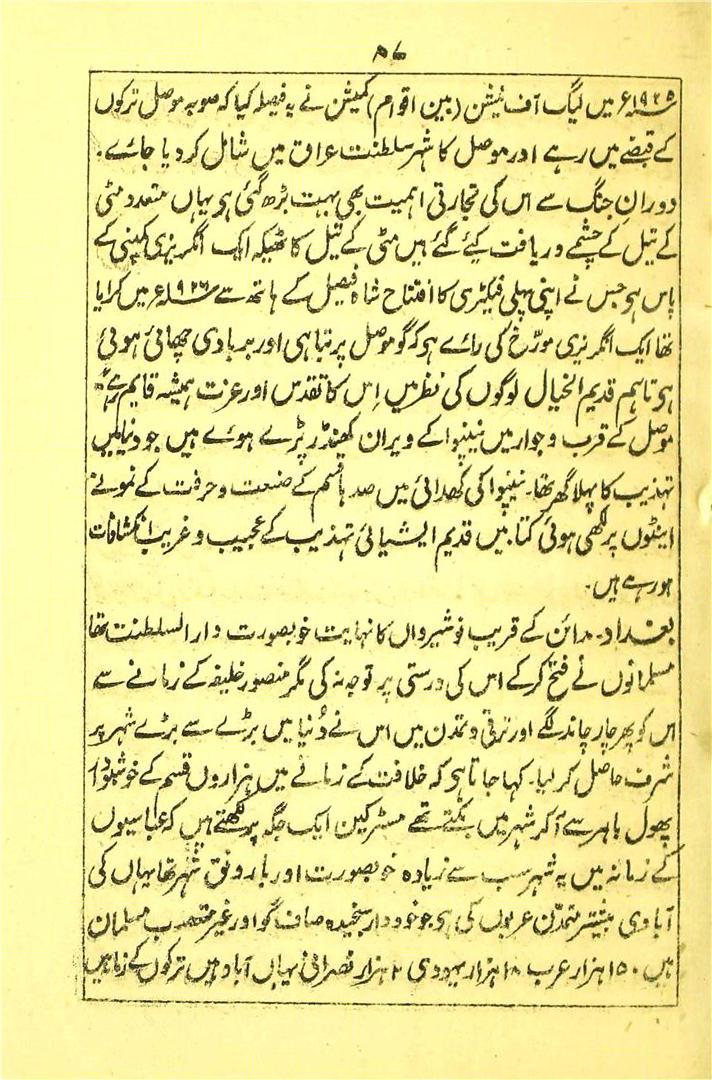 ۵۷
۱۹۲۵ء میں لیگ آف نیشن (بین اقوام) کمیشن نے یہ فیصلہ کیا کہ صوبہ موصل ترکوں
کے قبضے میں رہے اور موصل کا شہر سلطنت عراق میں شامل کر دیا جائے۔
دوران جنگ سے اس کی تجارتی اہمیت بھی بہت بڑھ گئی ہو یہاں متعدد مٹی
کے تیل کے چشمے دریافت کیئے گئے ہیں مٹی کے تیل کا ٹھیکہ ایک انگریزی کمپنی کے
پاس ہو جس نے اپنی پہلی فیکٹری کا افتتاح شاہ فیصل کے ہاتھ سے ۱۹۲۶ء میں کرایا
تھا ایک انگریزی مورّخ کی رائے ہو کہ گو موصل پر تباہی اور بربادی چھائی ہوئی
ہو تاہم قدیم الخیال لوگوں کی نظر میں اِس کا تقدس اور عزت ہمیشہ قایم رہے
موصل کے قرب وجوار میں نینوا کے ویران کھنڈر پڑے ہوئے ہیں جو دنیا میں
تہذیب کا پہلا گھر تھا۔ نینوا کی کھدائی میں صدہا قسم کے صنعت و حرفت کے نمونے
اینٹوں پر لکھی ہوئی کتابیں قدیم ایشیائی تہذیب کے عجیب و غریب انکشافات
ہورہے ہیں۔
بغداد۔ مدائن کے قریب نوشیرواں کا نہایت خوبصورت دارالسلطنت تھا
مسلمانوں نے فتح کرکے اس کی درستی پر توجہ نہ کی مگر منصور خلیفہ کے زمانے سے
اس کو پھر چار چاند لگے اور ترقی و تمدن میں اس نے دُنیا میں بڑے سے بڑے شہر پر
شرف حاصل کر لیا۔ کہا جاتا ہو کہ خلافت کے زمانے میں ہزاروں قسم کے خوشبودار
پھول باہر سے آکر شہر میں بکتے تھے مسٹر کین ایک جگہ پر لکھتے ہیں کہ عباسیوں
کے زمانہ میں یہ شہر سب سے زیادہ خوبصورت اور بارونق شہر تھا یہاں کی
آبادی بیشتر متمدّن عربوں کی ہو جو خوددار سنجیدہ صاف گو اور غیر متعصب مسلمان
ہیں ۱۵۰ ہزار عرب ہزار یہودی ہزار نصرانی یہاں آباد ہیں ترکوں کے زمانہ میں